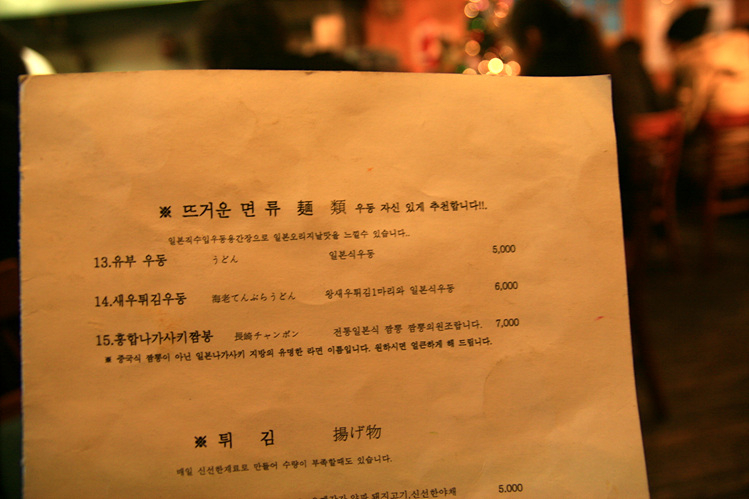 ※ 뜨거운 면 류 麺 類 우동 자신 있게 추천합니다!!.
일본직수입우동용간장으로 일본오리지날맛을 느낄수 있습니다..
13.유부 우동 うどん 일본식우동 5,000
14.새우튀김우동 海老てんぷらうどん 왕새우튀김1마리와 일본식우동 6,000
15.홍합나가사키짬봉 長崎チャンポン 전통일본식 짬뽕 짬뽕의원조랍니다. 7,000
※ 중국식 짬뽕이 아닌 일본나가사키 지방의 유명한 라면 이름입니다. 원하시면 얼큰하게 해 드립니다.
※ 튀 김 揚げ物
매일 신선한재료로 만들어 수량이 부족할때도 있습니다.
양파 돼지고기,신선한야채 5,000